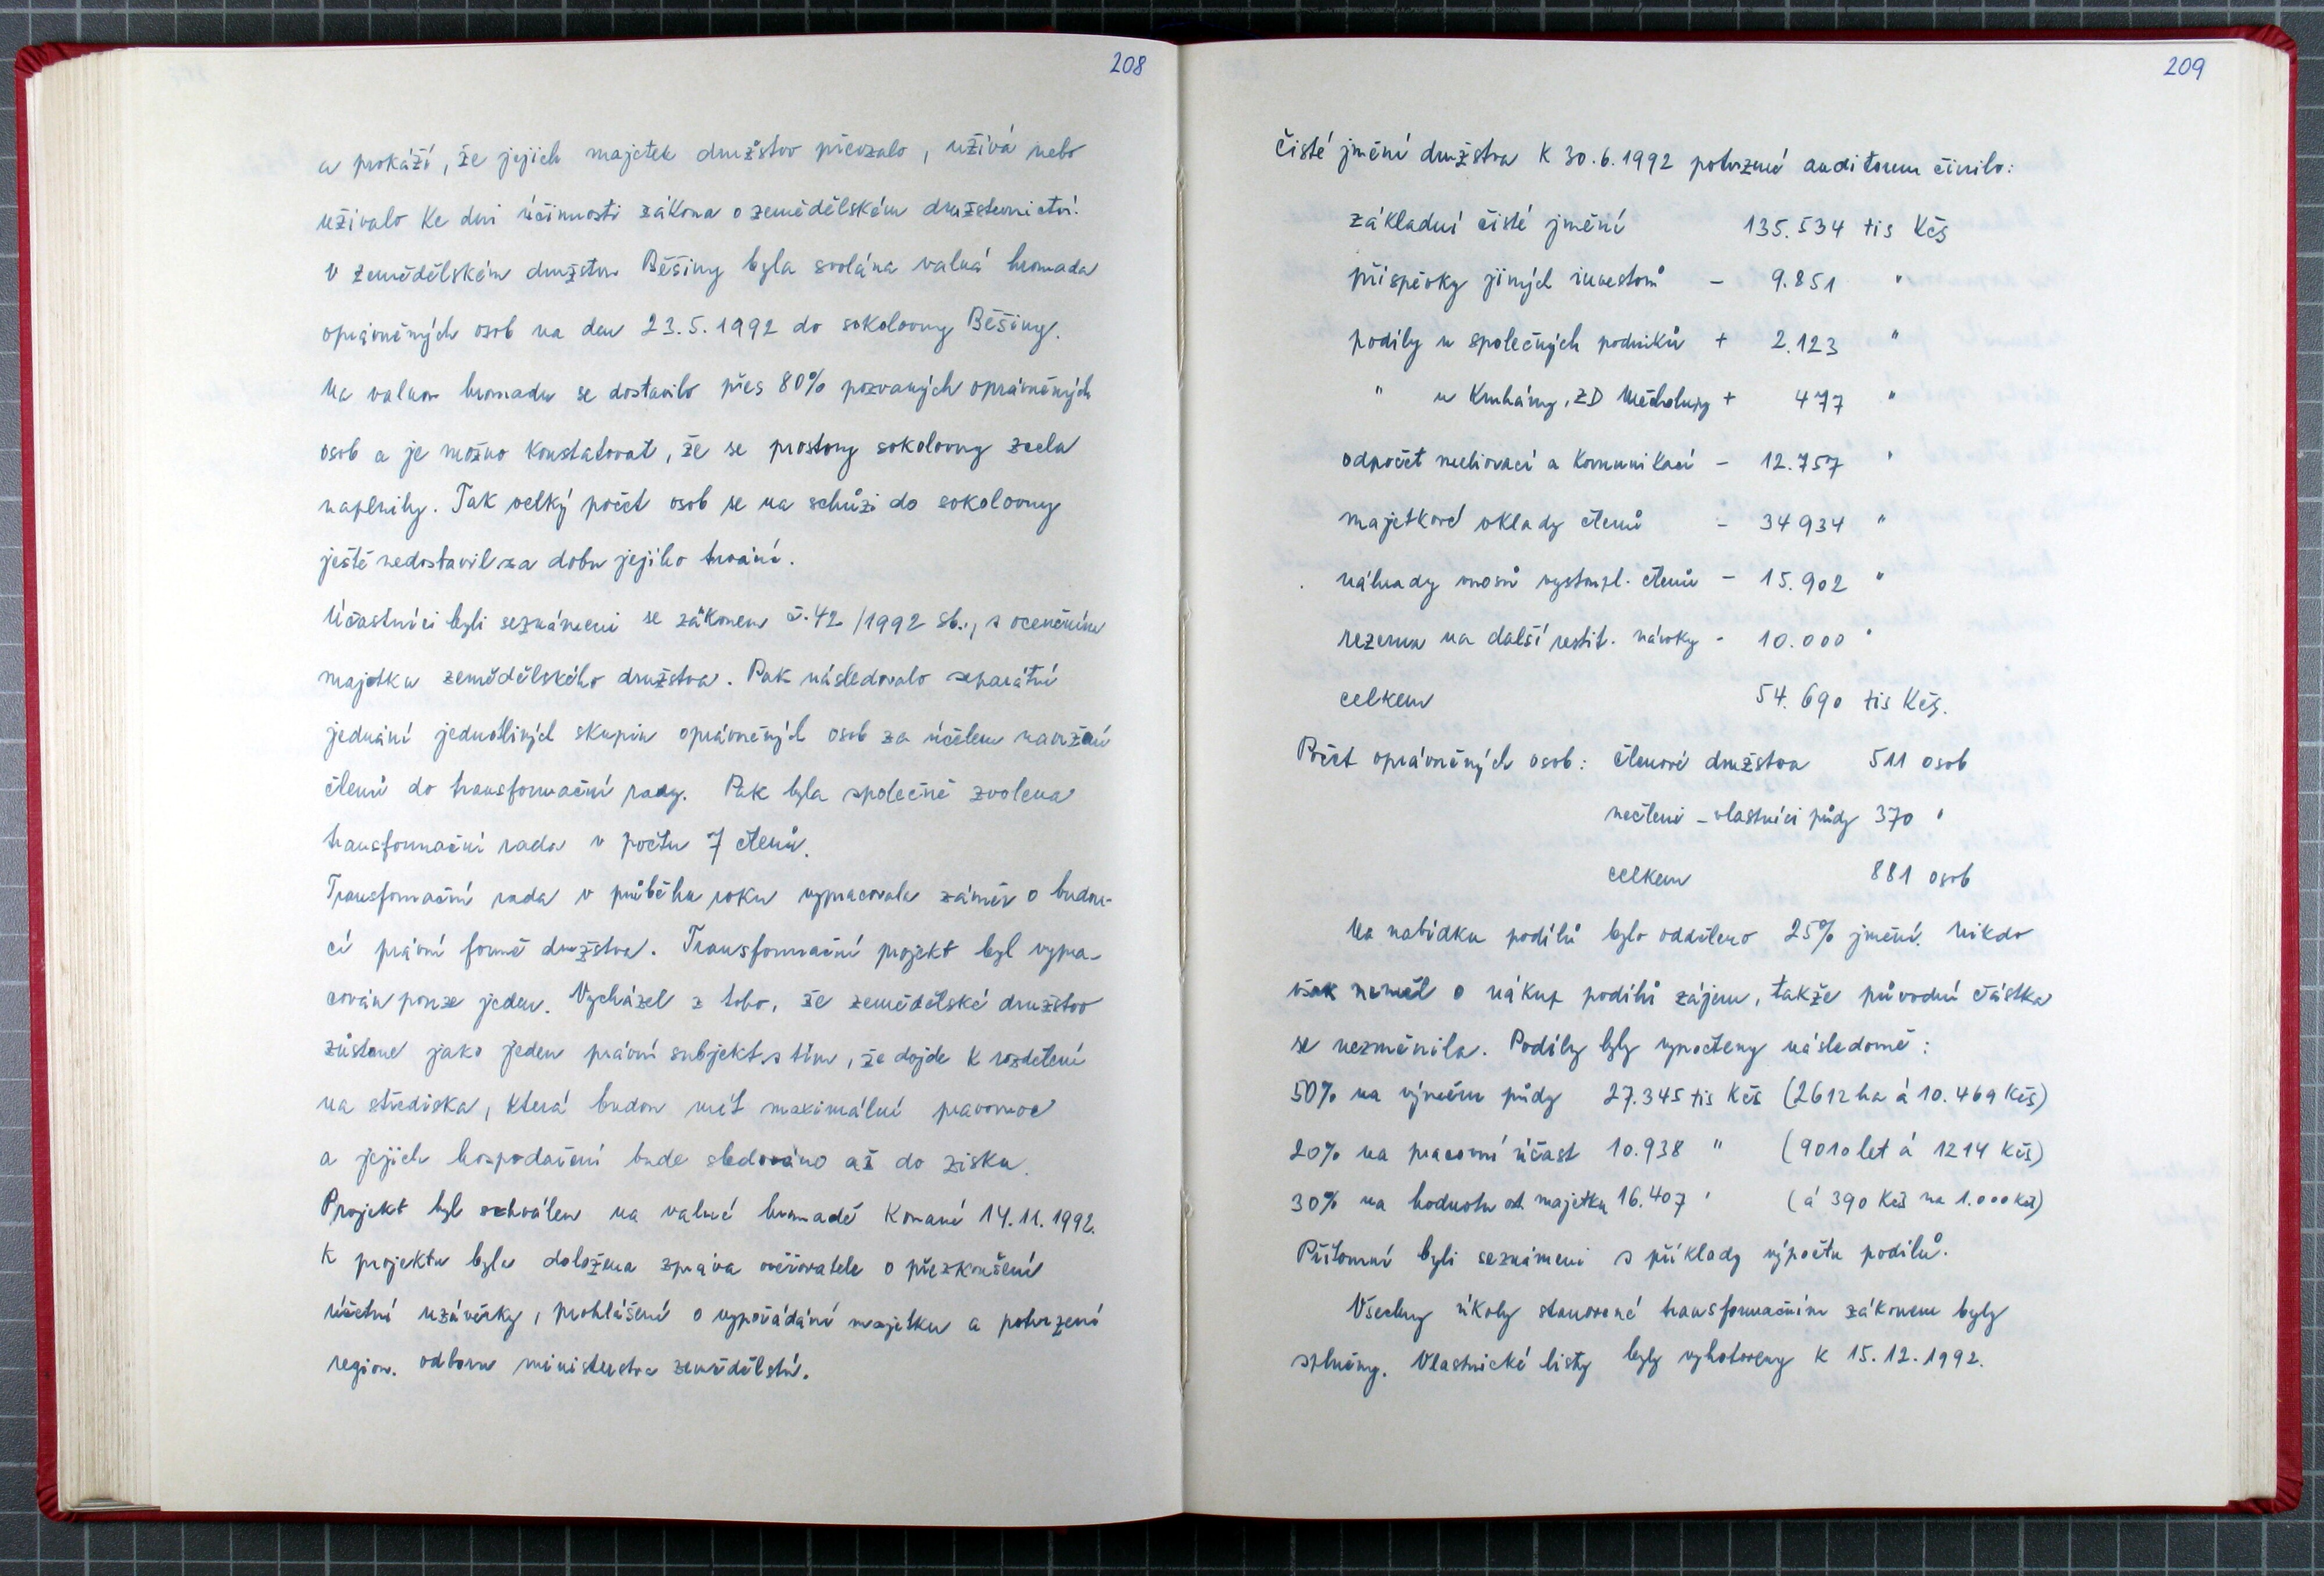 208
a prokáží, že jejich majetek družstvo převzalo, užívá nebo
užívalo ke dni účinnosti zákona o zemědělském družstevnictví.
V zemědělském družstvu Běšiny byla svolána valná hromada
oprávněných osob na den 23.5.1992 do sokolovny Běšiny.
Na valnou hromadu se dostavilo přes 80% pozvaných oprávněných
osob a je možno konstatovat, že se prostory sokolovny zcela
naplnily. Tak velký počet osob se na schůzi do sokolovny
ještě nedostavil za dobu jejího trvání.
Účastníci byli seznámeni se zákonem č. 42/1992 Sb., s oceněním
majetku zemědělského družstva. Pak následovalo separátní
jednání jednotlivých skupin oprávněných osob za účelem navržení
členů do transformační rady. Pak byla společně zvolena
transformační rada v počtu 7 členů.
Transformační rada v průběhu roku vypracovala záměr o budou-
cí právní formě družstva. Transformační projekt byl vypra-
cován pouze jeden. Vycházel z toho, že zemědělské družstvo
zůstane jako jeden právní subjekt s tím, že dojde k rozdělení
na střediska, která budou mít maximální pravomoc
a jejich hospodaření bude sledováno až do zisku.
Projekt byl schválen na valné hromadě konané 14.11.1992.
K projektu byla doložena zpráva ověřovatele o přezkoušení
účetní uzávěrky, prohlášení o vypořádání majetku a potvrzení
region. odboru ministerstva zemědělství.
209
čisté jmění družstva k 30.6.1992 potvrzené auditorem činilo:
základní čisté jmění 135.534 tis Kčs
příspěvky jiných investorů - 9.851 "
podíly u společných podniků + 2.123 "
" u Kruhárny, ZD Měcholupy + 477 "
odpočet meliorací a komunikací - 12.757 "
majetkové vklady členů - 34934 "
náhrady vnosů vystoupl. členů - 15.902 "
rezerva na další restit. nároky - 10.000 "
celkem 54.690 tis Kčs.
Počet oprávněných osob: členové družstva 511 osob
nečleni - vlastníci půdy 370 "
celkem 881 osob
Na nabídku podílů bylo odděleno 25% jmění. Nikdo
však neměl o nákup podílů zájem, takže původní částka
se nezměnila. Podíly byly vypočteny následovně:
50% na výměru půdy 27.345 tis Kčs (2612 ha á 10.469 Kčs)
20% na pracovní účast 10.938 " (9010 let á 1214 Kčs)
30% na hodnotu ost. majetku 16.407 " (á 390 Kčs na 1.000 Kčs)
Přítomní byli seznámeni s příklady výpočtu podílů.
Všechny úkoly stanovené transformačním zákonem byly
splněny. Vlastnické listy byly vyhotoveny k 15.12.1992.